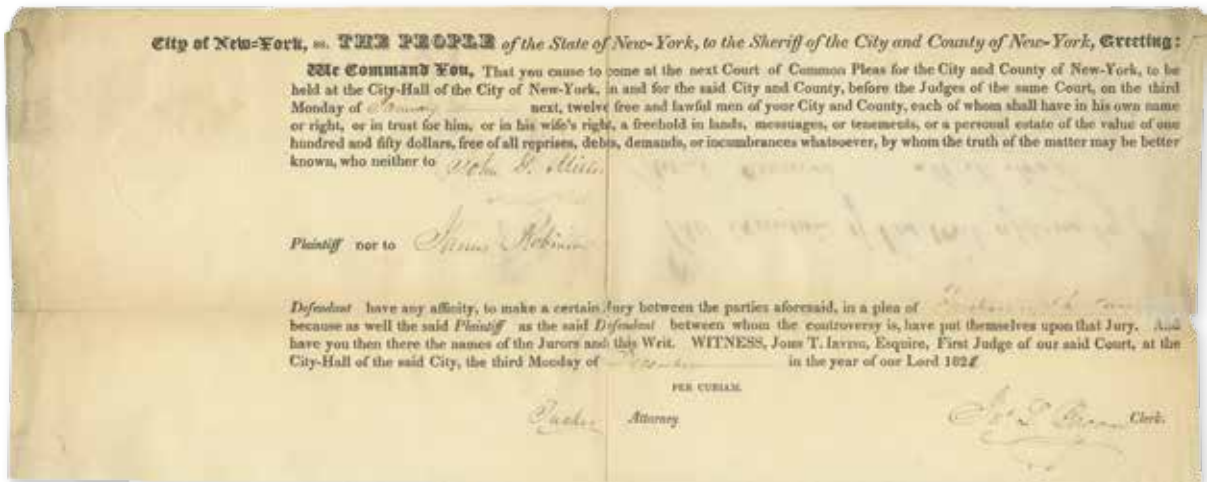 City of New-York, ss. THE PEOPLE of the State of New-York, to the Sheriff of the City and County of New-York, Greeting:
We Command You, That you cause to come at the next Court of Common Pleas for the City and County of New-York, to be
held at the City-Hall of the City of New-York, in and for the said City and County, before the Judges of the same Court, on the third
Monday of January next, twelve free and lawful men of your City and County, each of whom shall have in his own name
or right, or in trust for him, or in his wife's right, a freehold in lands, messuages, or tenements, or a personal estate of the value of one
hundred and fifty dollars, free of all reprises, debts, demands, or incumbrances whatsoever, by whom the truth of the matter may be better
known, who neither to John D. Miller
Plaintiff nor to James Robinson
Defendant have any affinity, to make a certain Jury between the parties aforesaid, in a plea of
because as well the said Plaintiff as the said Defendant between whom the controversy is, have put themselves upon that Jury. And
have you then there the names of the Jurors and this Writ. WITNESS, John T. Irving, Esquire, First Judge of our said Court, at the
City-Hall of the said City, the third Monday of in the year of our Lord 182
PER CURIAM.
Attorney Clerk.